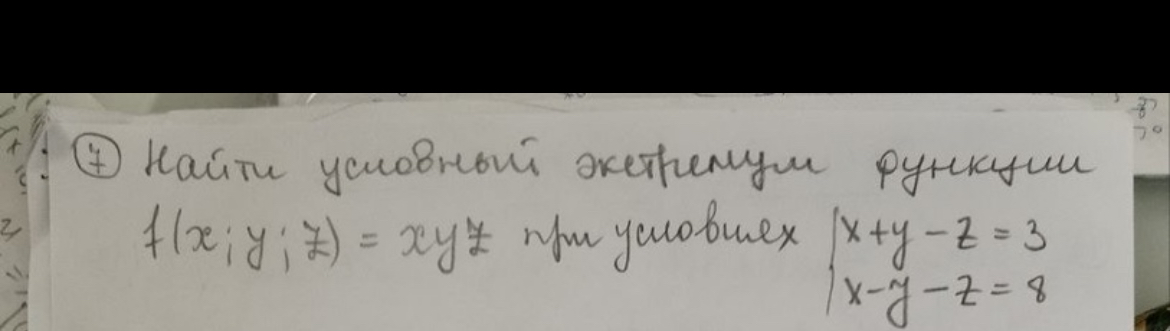 ⑦ Найти условный экстремум функции
f(x; y; z) = xyz при условиях | x + y - z = 3
| x - y - z = 8